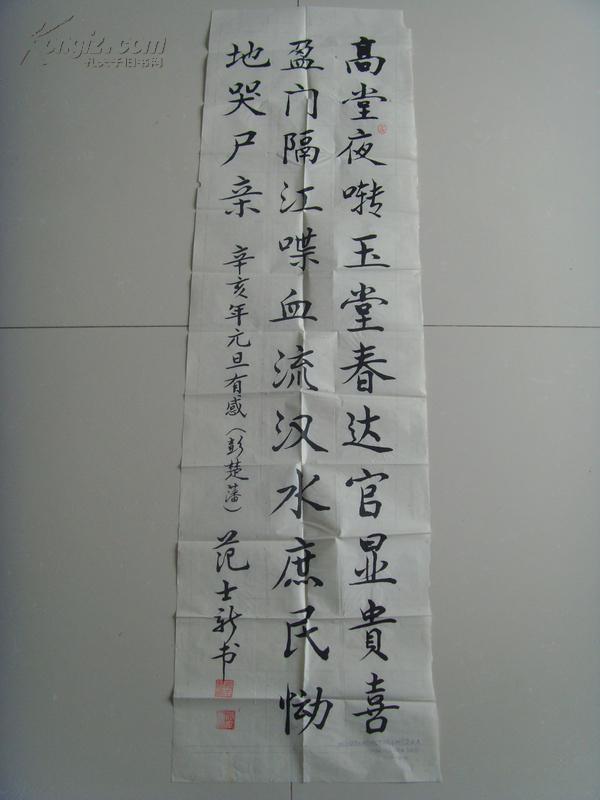 高堂夜啭玉堂春达官显貴喜
盈门隔江喋血流汉水庶民恸
地哭尸亲 辛亥年元旦有感（彭楚藩） 范士新书
Kongfz.com
孔夫子旧书网